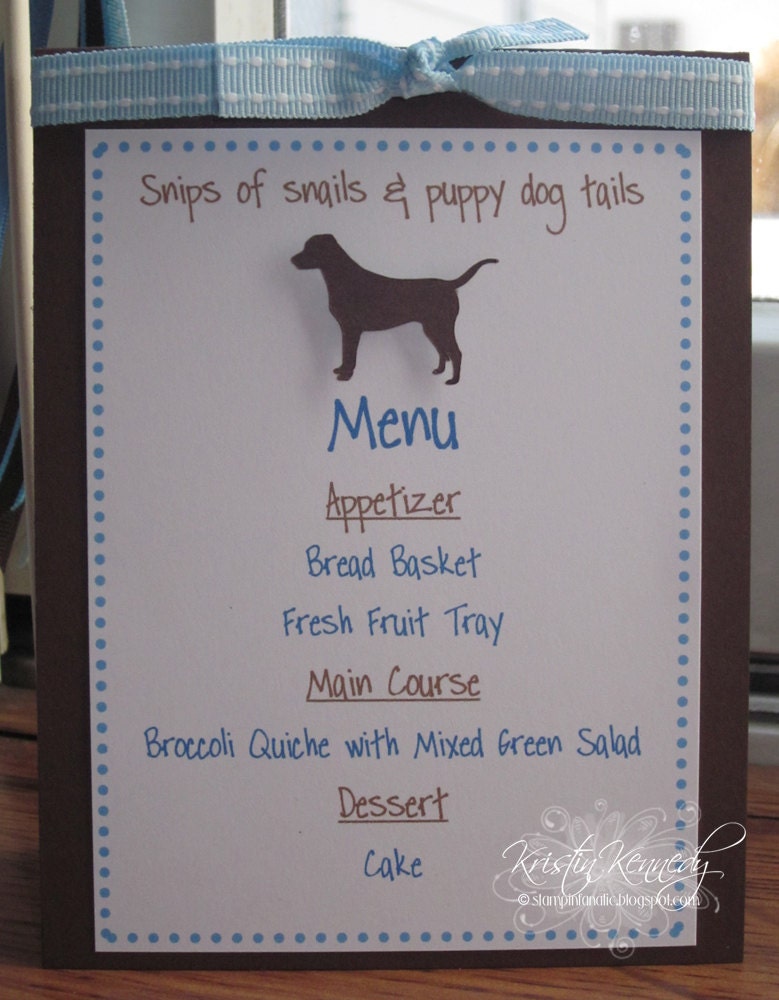 Snips of snails & puppy dog tails
Menu
Appetizer
Bread Basket
Fresh Fruit Tray
Main Course
Broccoli Quiche with Mixed Green Salad
Dessert
Cake
Kristin Kennedy
© stampinfanatic.blogspot.com